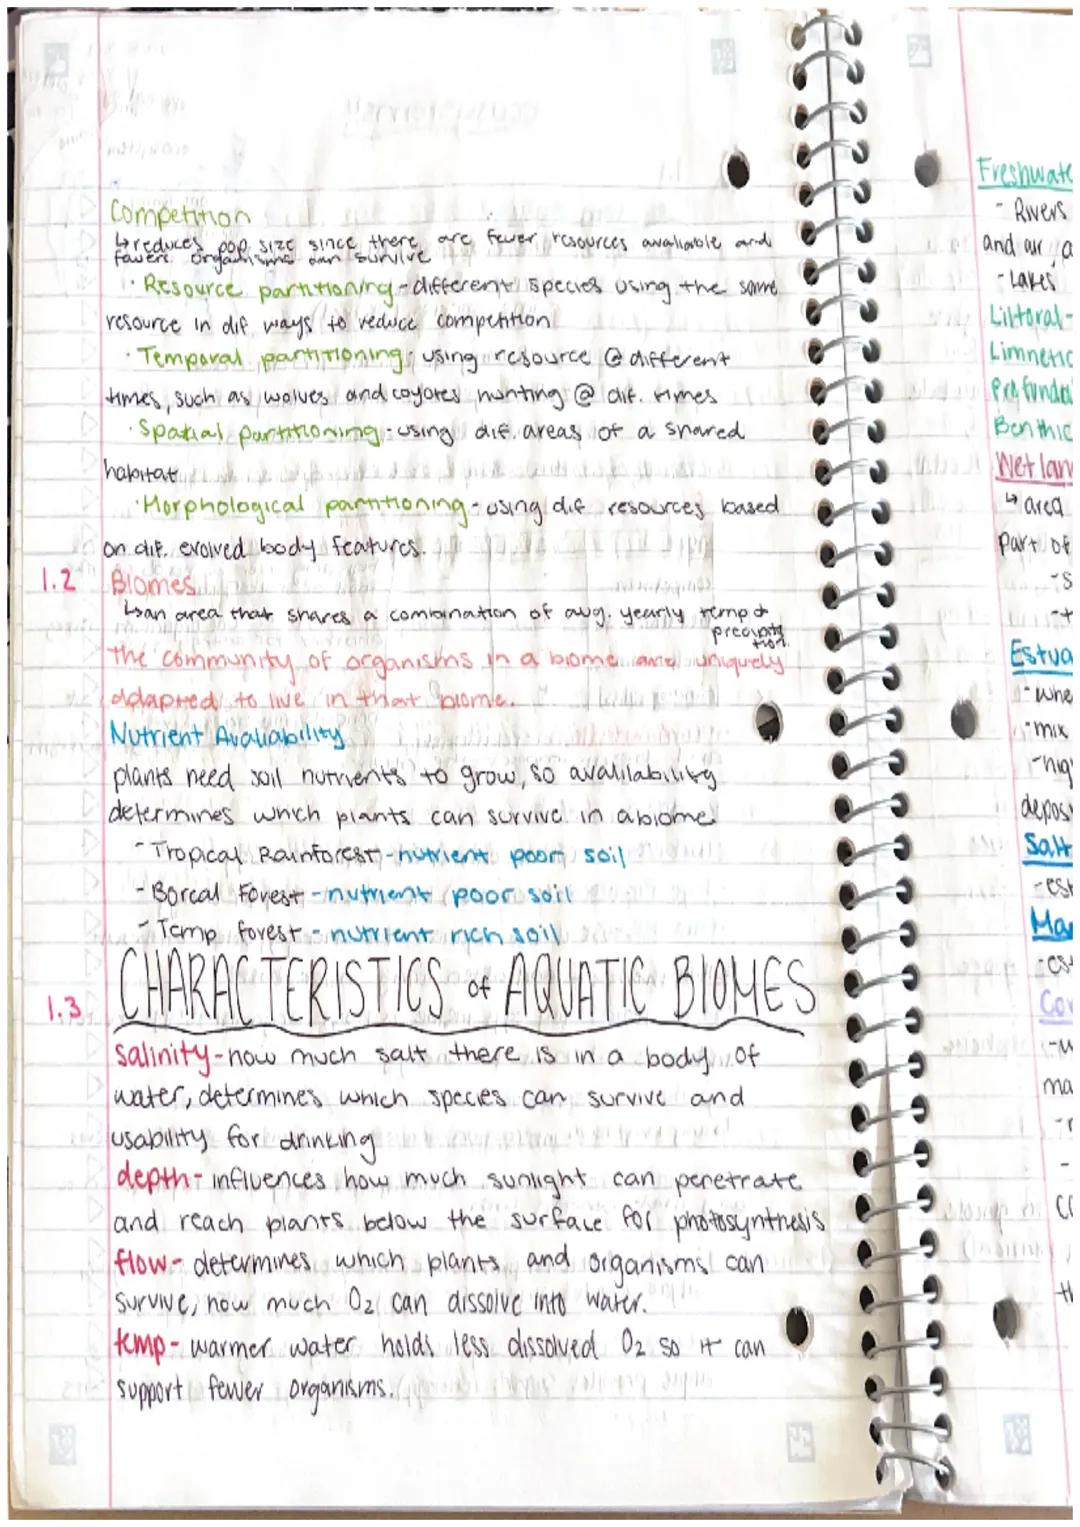 Competition
↳reduces pop size since there are fewer resources available and
fewere organisms can survive
· Resource partitioning - different species using the same
resource in dif ways to reduce competition
· Temporal partitioning; using resource @ different
times, such as wolves and coyotes hunting @ dif. times
· Spatial partitioning - using dif. areas of a shared
habitat
· Morphological partitioning - using dif resources based
on dif. evolved body features.
1.2 Biomes
↳an area that shares a combination of avg. yearly temp +
precipita
tion.
the community of organisms in a biome are uniquely
adapted to live in that biome.
Nutrient Avaliability
plants need soil nutrients to grow, so avalilability
determines which plants can survive in a biome
- Tropical Rainforest - nutrient poor soil
- Boreal Forest - nutrient poor soil
- Temp forest - nutrient rich soil
1.3 CHARACTERISTICS of AQUATIC BIOMES
salinity - how much salt there is in a body of
water, determines which species can survive and
usability for drinking
depth - influences how much sunlight can penetrate
and reach plants below the surface for photosynthesis
flow - determines which plants and organisms can
survive, how much O2 can dissolve into water.
temp - warmer water holds less dissolved O2 so it can
support fewer organisms.
Freshwate
- Rivers
and air a
- Lakes
Littoral -
Limnetic
Profunda
Benthic
Wetlan
↳ area
part of
- s
- t
Estua
- whe
- mix
- hig
depos
Salt
- est
Ma
- est
Co
- w
ma
- r
-
co
th